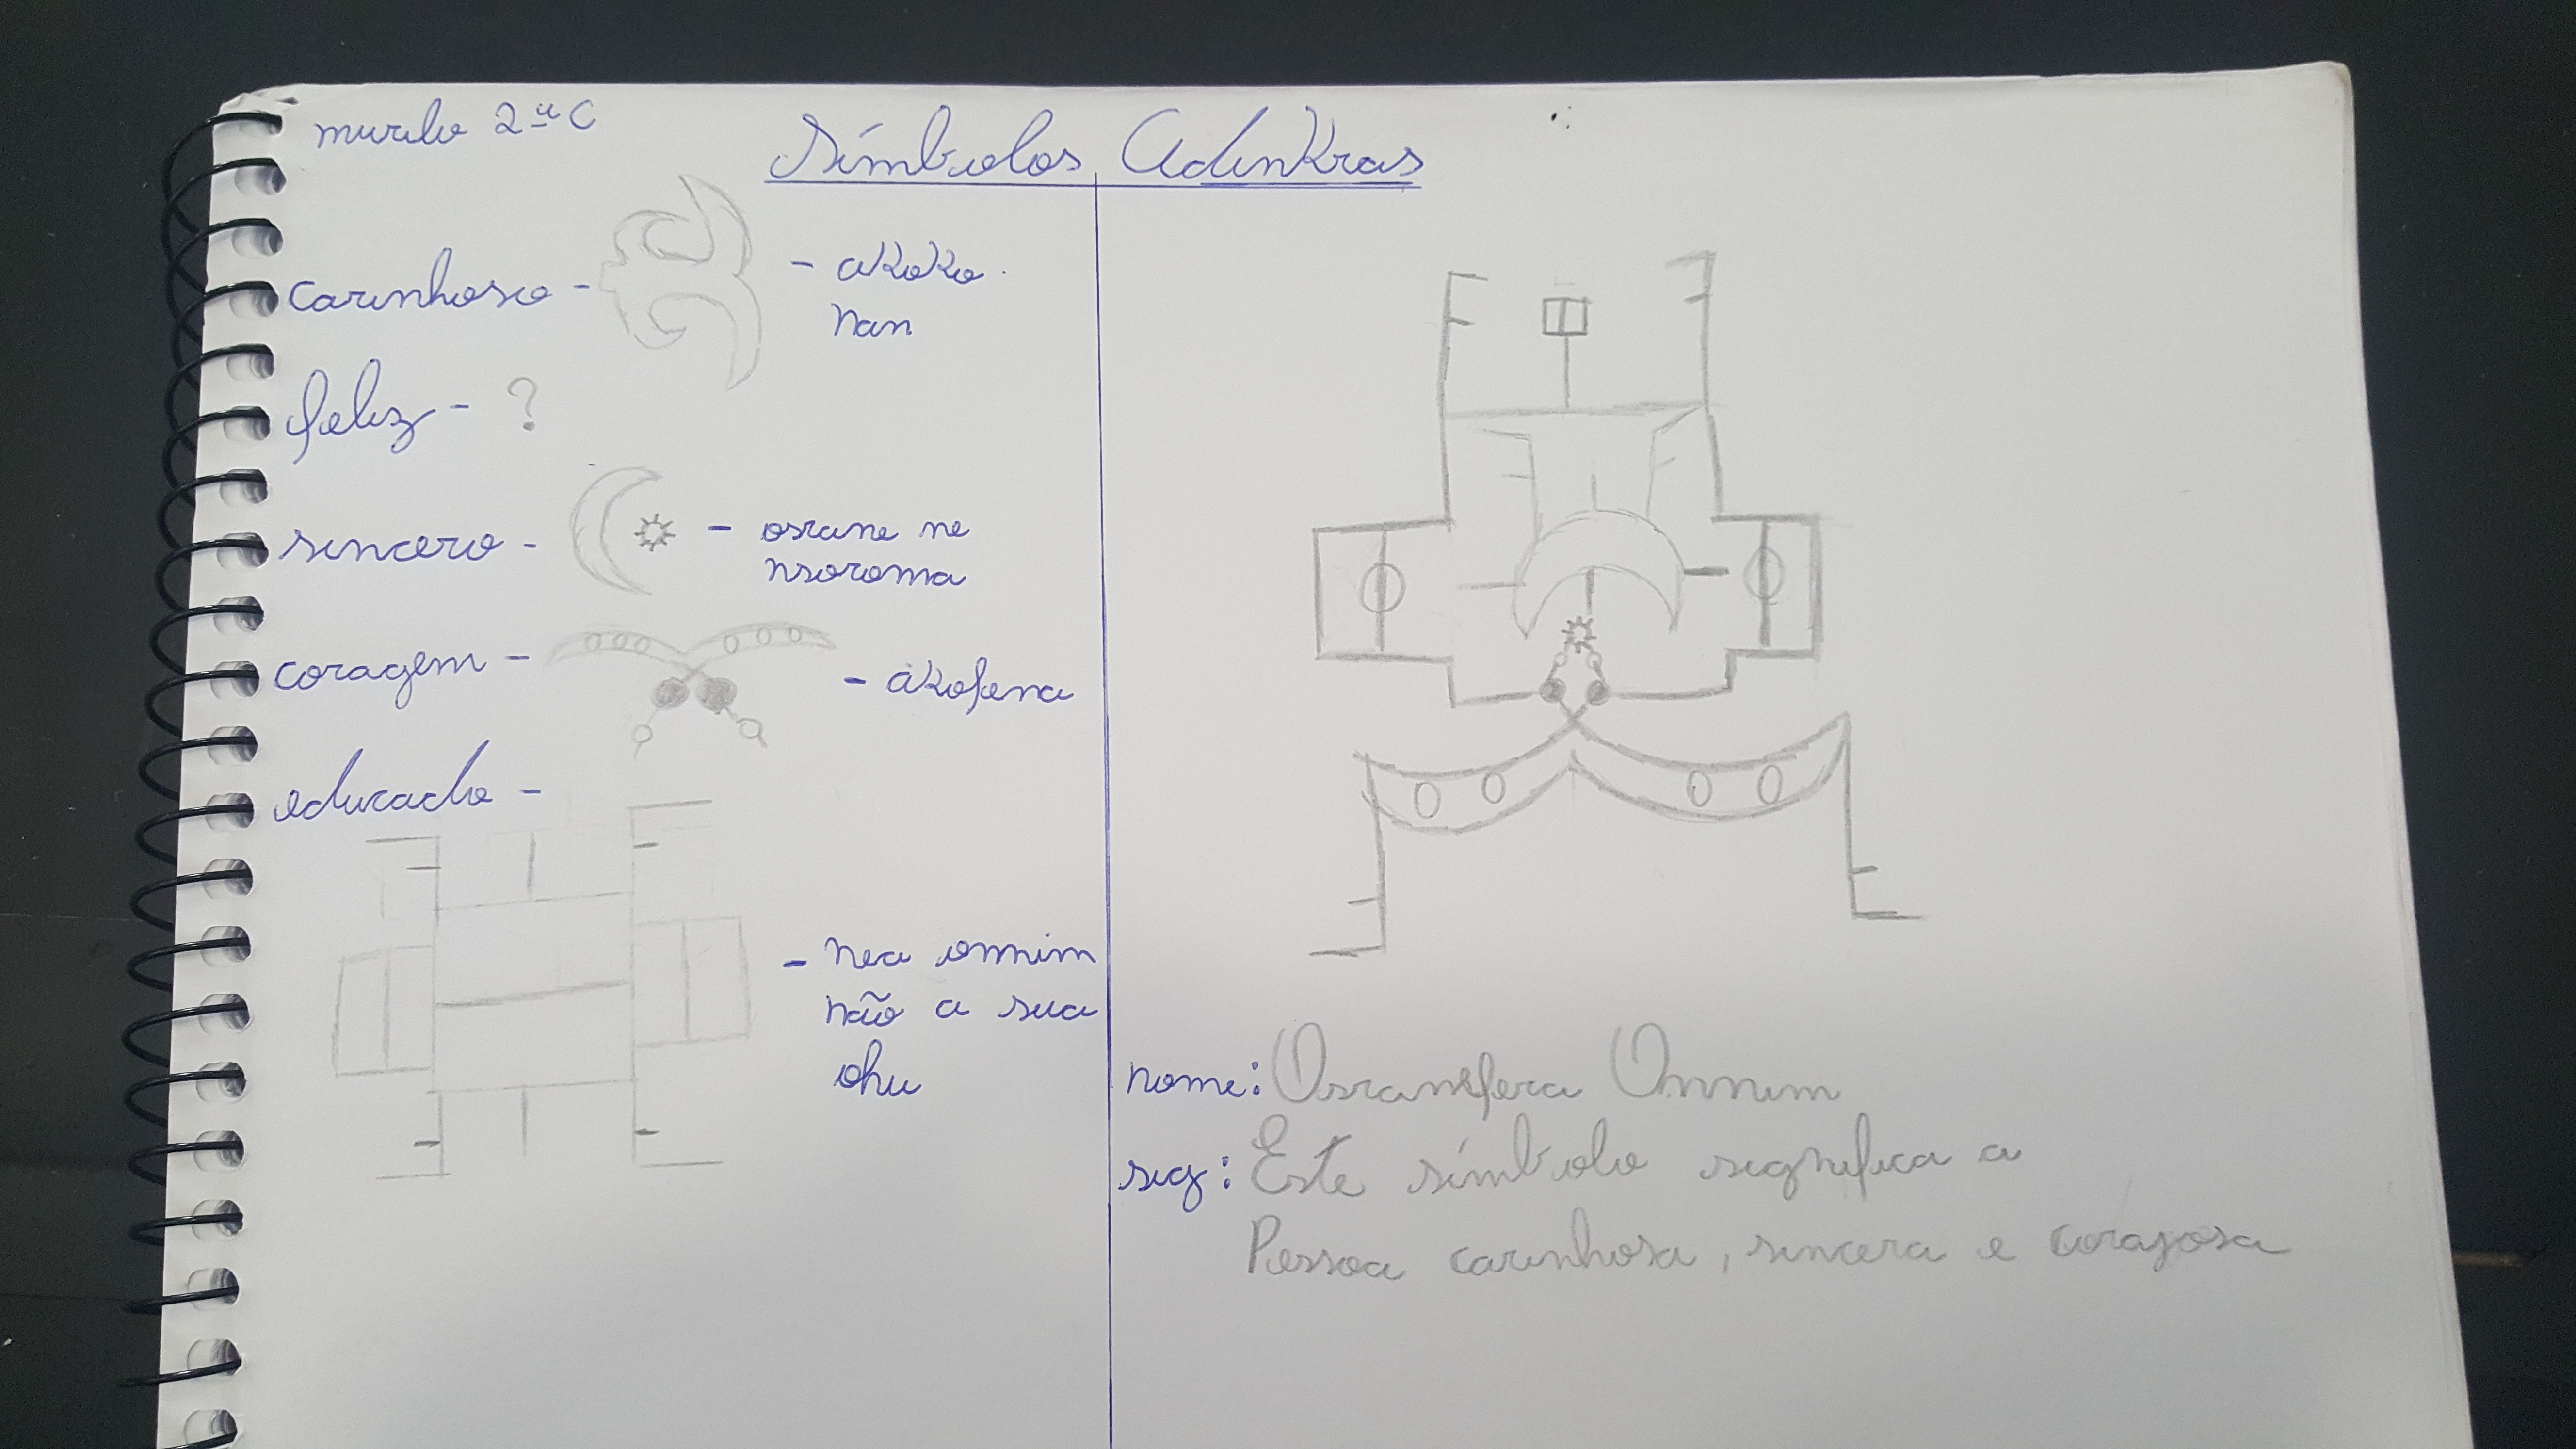 murilo 2ª C
Símbolos Adinkras
carinhoso - - akoko
nan
feliz - ?
sincero - - osrane ne
nsoroma
coragem - - akofena
educado -
- nea onnim
não a sua
ohu
nome: Osransfera Onnim
sig: Este símbolo significa a
Pessoa carinhosa, sincera e corajosa